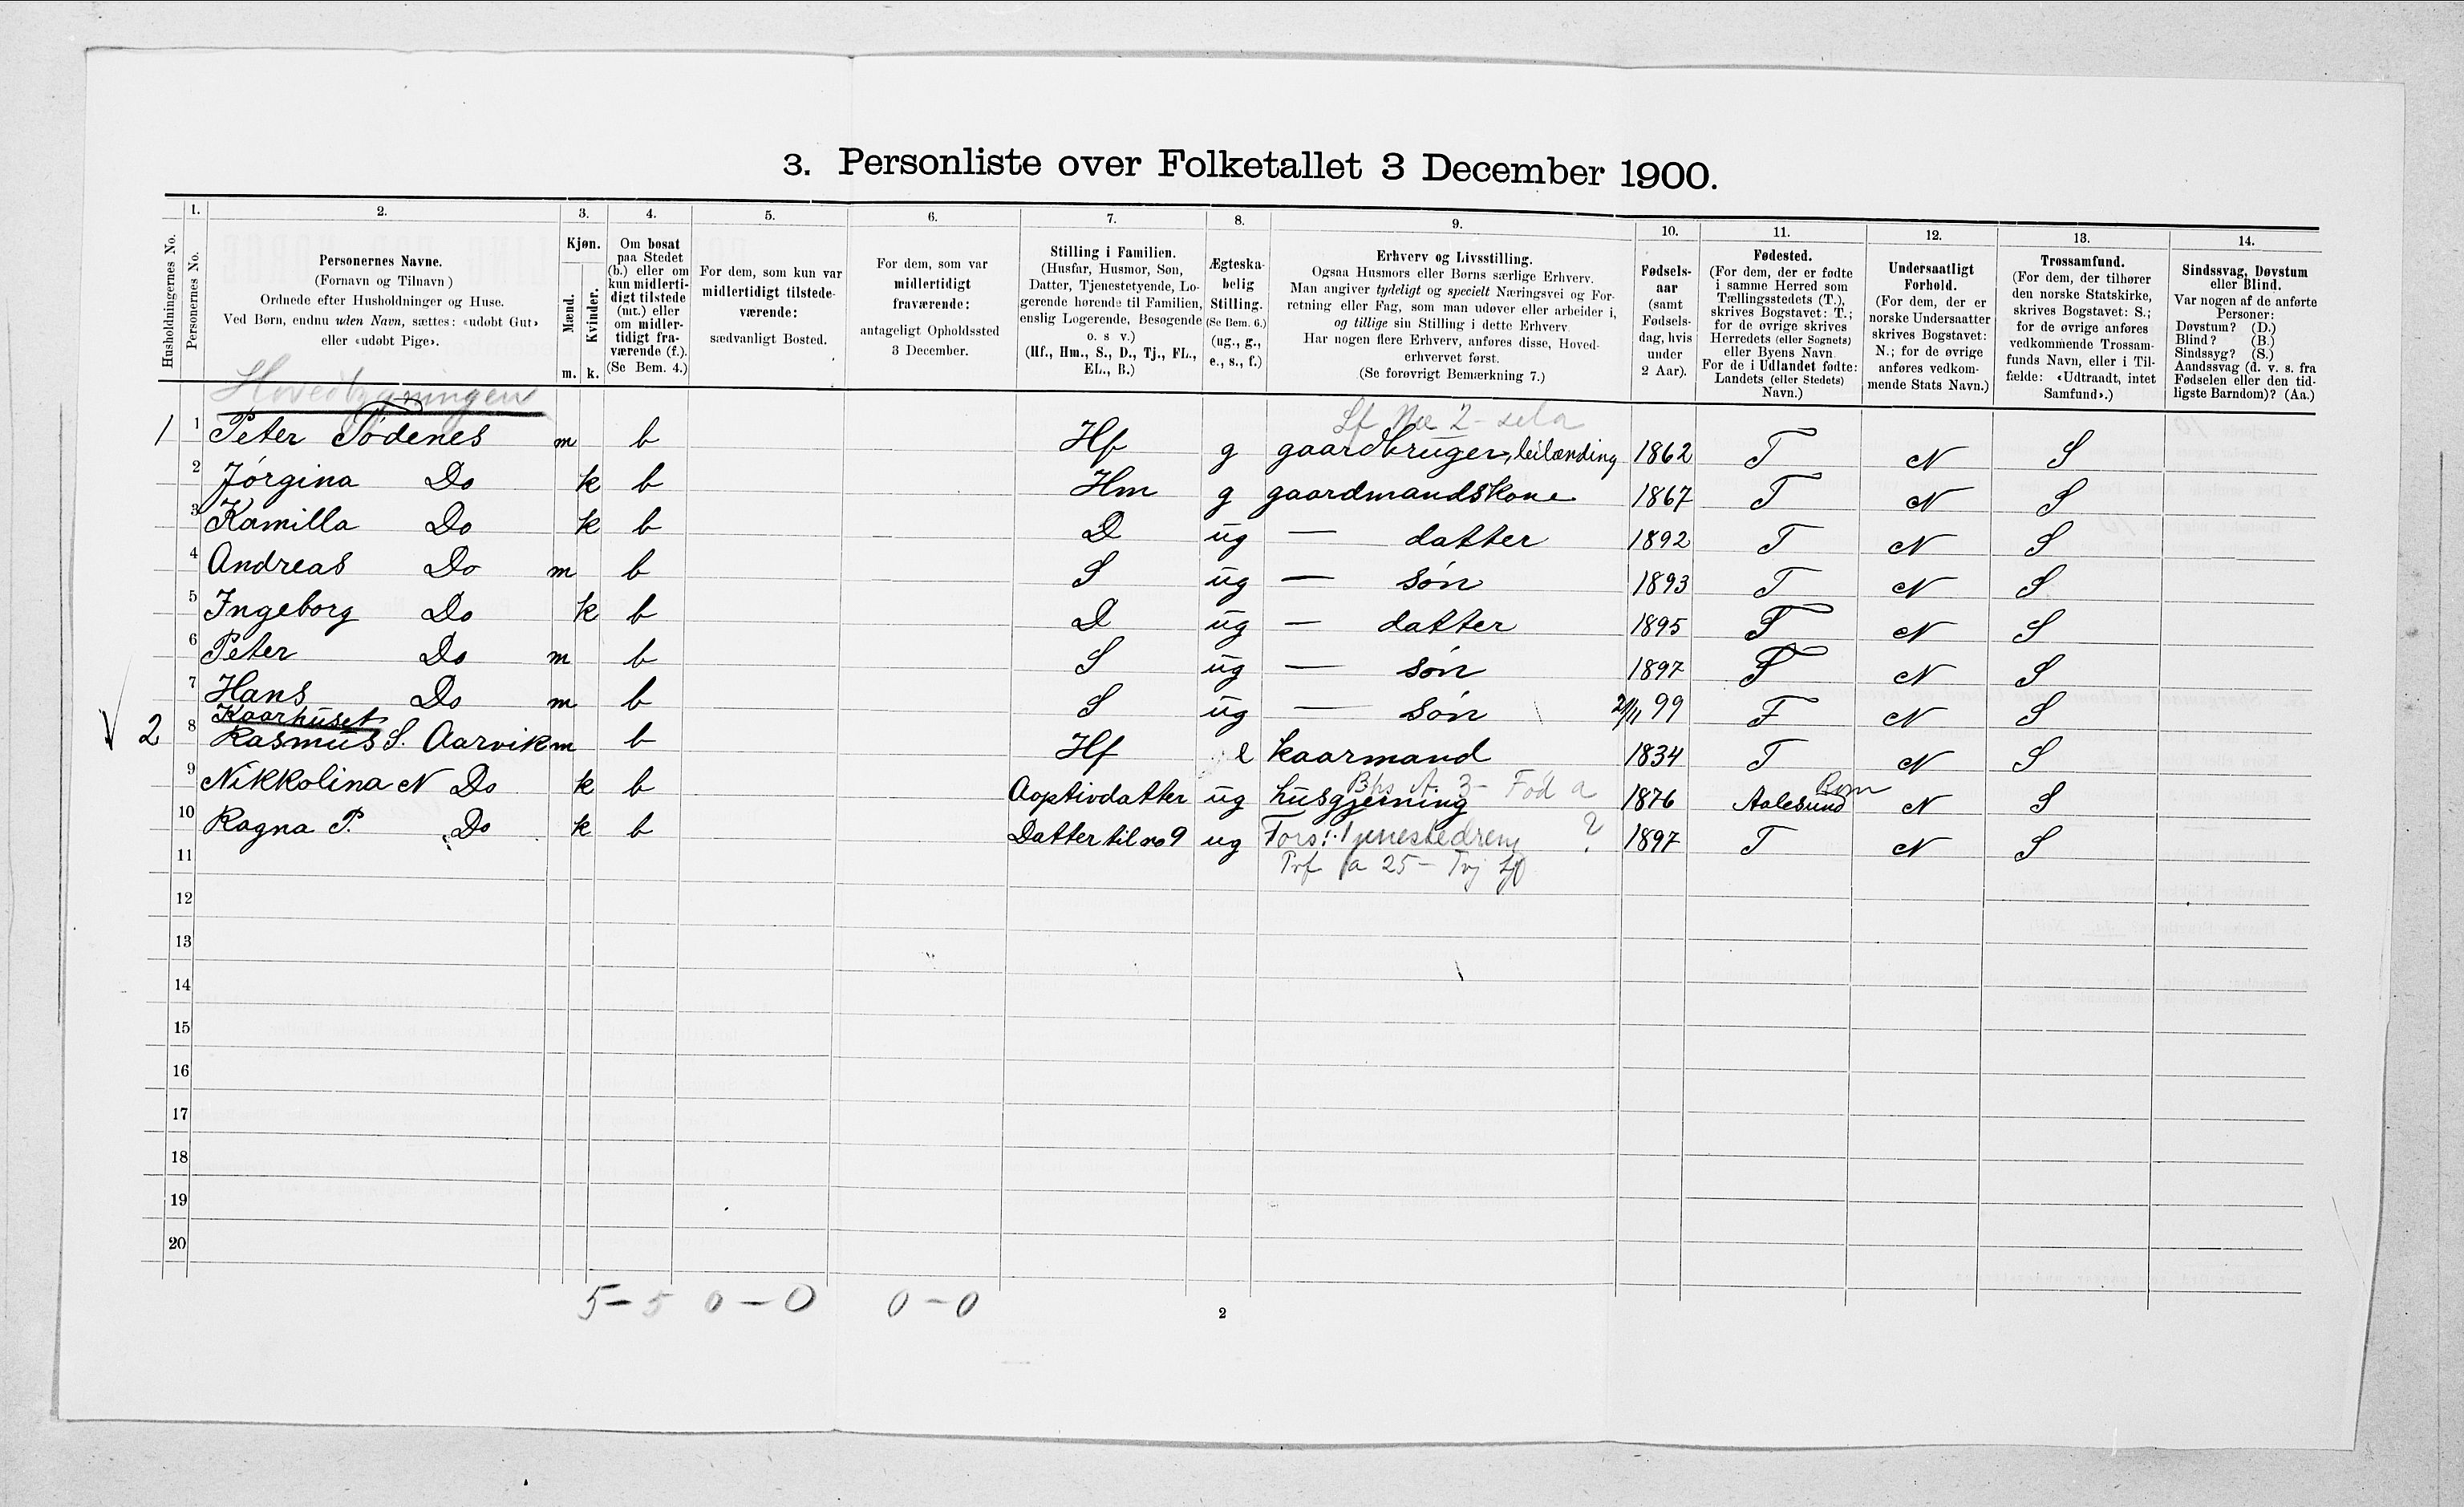 3. Personliste over Folketallet 3 December 1900.
Husholdningernes No.
1.
Personernes No.
2.
Personernes Navne.
(Fornavn og Tilnavn)
Ordnede efter Husholdninger og Huse.
Ved Børn, endnu uden Navn, sættes: «udøbt Gut»
eller «udøbt Pige».
3.
Kjøn.
Mænd.
Kvinder.
m. k.
4.
Om bosat
paa Stedet
(b.) eller om
kun midlerti-
digt tilstede
(mt.) eller
om midler-
tidigt fra-
værende (f.).
(Se Bem. 4.)
5.
For dem, som kun var
midlertidigt tilstede-
værende:
sædvanligt Bosted.
6.
For dem, som var
midlertidigt
fraværende:
antageligt Opholdssted
3 December.
7.
Stilling i Familien.
(Husfar, Husmor, Søn,
Datter, Tjenestetyende, Lo-
gerende hørende til Familien,
enslig Logerende, Besøgende
o. s v.)
(Hf., Hm., S., D., Tj., FL.,
EL., B.)
8.
Ægteska-
belig
Stilling.
(Se Bem. 6.)
(ug., g.,
e., s., f.)
9.
Erhverv og Livsstilling.
Ogsaa Husmors eller Børns særlige Erhverv.
Man angiver tydeligt og specielt Næringsvei og For-
retning eller Fag, som man udøver eller arbeider i,
og tillige sin Stilling i dette Erhverv.
Har nogen flere Erhverv, anføres disse, Hoved-
erhvervet først.
(Se forøvrigt Bemærkning 7.)
10.
Fødsels-
aar
(samt
Fødsels-
dag, hvis
under
2 Aar).
11.
Fødested.
(For dem, der er fødte
i samme Herred som
Tællingsstedets (T.),
skrives Bogstavet: T.;
for de øvrige skrives
Herredets (eller Sognets)
eller Byens Navn.
For de i Udlandet fødte:
Landets (eller Stedets)
Navn.)
12.
Undersaatligt
Forhold.
(For dem, der er
norske Undersaatter
skrives Bogstavet:
N.; for de øvrige
anføres vedkom-
mende Stats Navn.)
13.
Trossamfund.
(For dem, der tilhører
den norske Statskirke,
skrives Bogstavet: S.;
for de øvrige anføres
vedkommende Trossam-
funds Navn, eller i Til-
fælde: «Udtraadt, intet
Samfund».)
14.
Sindssvag, Døvstum
eller Blind.
Var nogen af de anførte
Personer:
Døvstum? (D.)
Blind? (B.)
Sindssyg? (S.)
Aandssvag (d. v. s. fra
Fødselen eller den tid-
ligste Barndom)? (Aa.)
Hovedbygningen
1 1 Peter Tødenes m b Hf g gaardbruger, leilænding 1862 T N S
2 Jørgina Do k b Hm g gaardmandskone 1867 T N S
3 Kamilla Do k b D ug — datter 1892 T N S
4 Andreas Do m b S ug — søn 1893 T N S
5 Ingeborg Do k b D ug — datter 1895 T N S
6 Peter Do m b S ug — søn 1897 T N S
7 Hans Do m b S ug — søn 21/11 99 T N S
Kaarhuset
V 2 8 Rasmus S. Aarvik m b Hf e kaarmand 1834 T N S
9 Nikkolina N Do k b Aoptivdatter ug husgjerning 1876 Aalesund N S
10 Ragna P. Do k b Datter til no 9 ug Fors: Tjenestedreng ? 1897 T N S
11
12
13
14
15
16
17
18
19
20
5 – 5 0 – 0 0 – 0
2